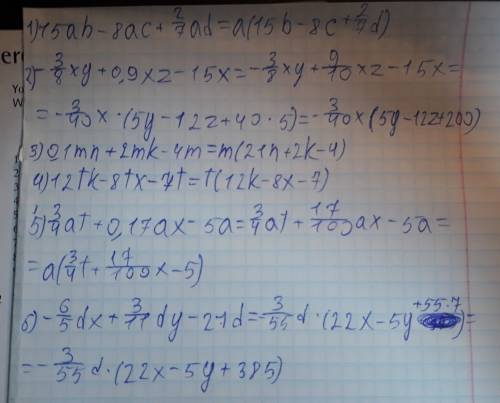 1) 15ab-8ac+2/7ad=a(15b-8c+2/7d)
2)-3/8xy+0,9xz-15x=-3/8xy+9/10xz-15x=
=-3/40x·(5y-12z+40·5)=-3/40x(5y-12z+200)
3) 0,1mn+2mk-4m=m(21n+2k-4)
4) 12tk-8tx-7t=t(12k-8x-7)
5) 3/4at+0,17ax-5a=3/4at+17/100ax-5a=
=a(3/4t+17/100x-5)
6)-6/5dx+3/11dy-21d=-3/55d·(22x-5y+55·7)=
=-3/55d·(22x-5y+385)